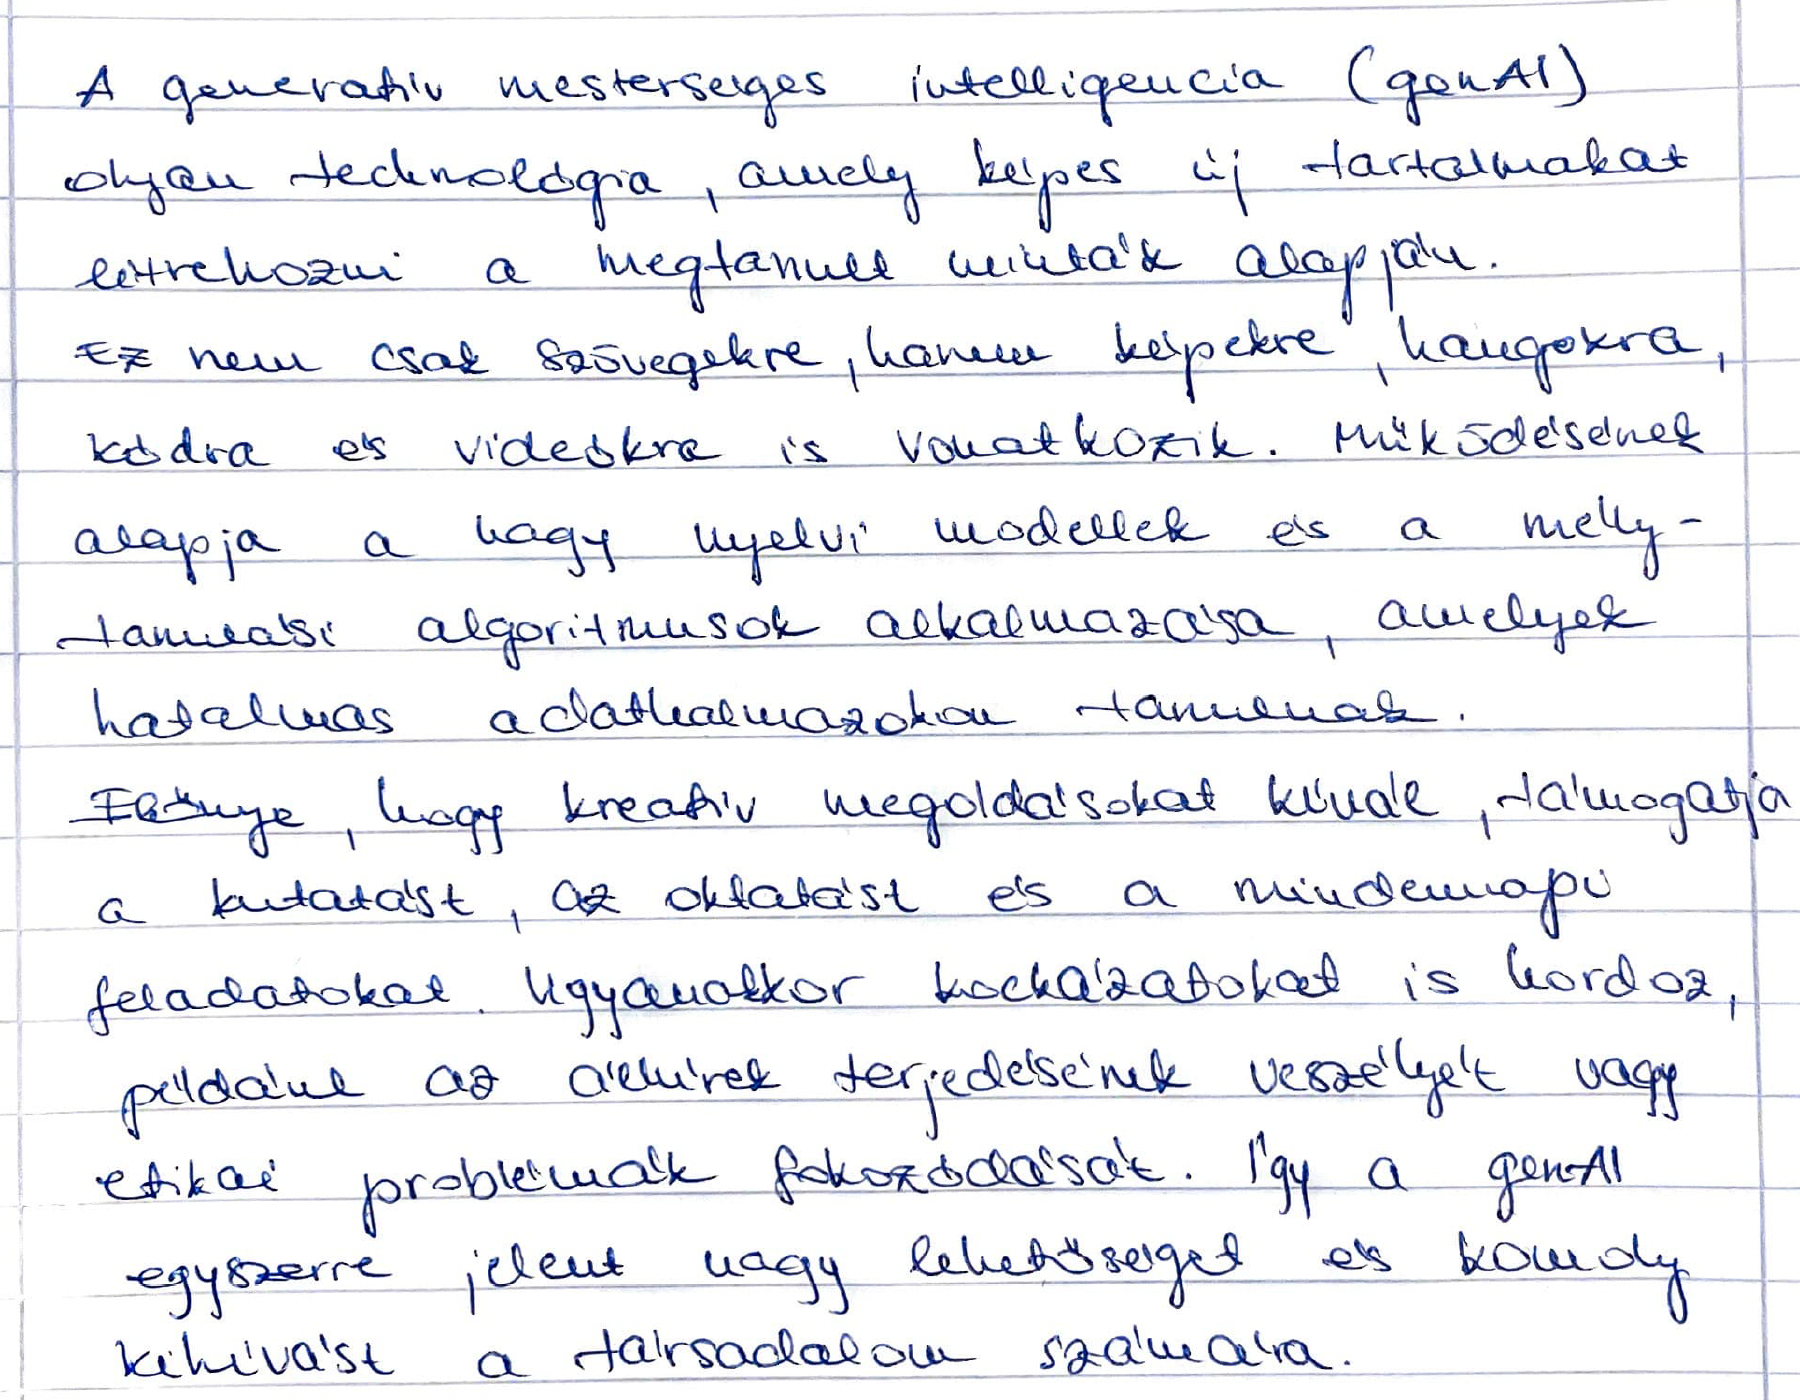 A generatív mesterséges intelligencia (genAI)
olyan technológia, amely képes új tartalmakat
létrehozni a megtanult minták alapján.
Ez nem csak szövegekre, hanem képekre, hangokra,
kódra és videókra is vonatkozik. Működésének
alapja a nagy nyelvi modellek és a mély-
tanulási algoritmusok alkalmazása, amelyek
hatalmas adathalmazokon tanulnak.
Előnye, hogy kreatív megoldásokat kínál, támogatja
a kutatást, az oktatást és a mindennapi
feladatokat. Ugyanakkor kockázatokat is hordoz,
például az álhírek terjedésének veszélyét vagy
etikai problémák fokozódását. Így a genAI
egyszerre jelent nagy lehetőséget és komoly
kihívást a társadalom számára.